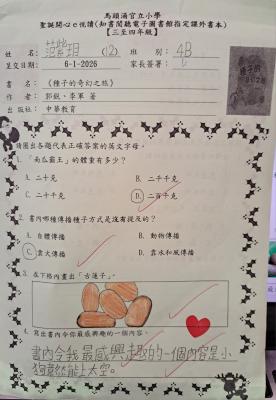 馬頭涌官立小學
聖誕開心e悅讀(知書閱聽電子圖書館指定課外書本)
【三至四年級】
姓名: 范紫玥 (12) 班別: 4B
呈交日期: 6-1-2026 家長簽署:
書名: 《種子的奇幻之旅》
作者: 郭銳、李軍 著
出版社: 中華教育
請圈出各題代表正確答案的英文字母。
1. 「南瓜霸王」的體重有多少?
A. 二十克 B. 二千千克
C. 二十千克 D. 二百千克
2. 書內哪種傳播種子方式是沒有提及的?
A. 自體傳播 B. 動物傳播
C. 雲大傳播 D. 雲水和風傳播
3. 在下格內畫出「古蓮子」。
4. 寫出書內令你最感興趣的一個內容。
書內令我最感興趣的一個內容是小
狗竟然能上太空。